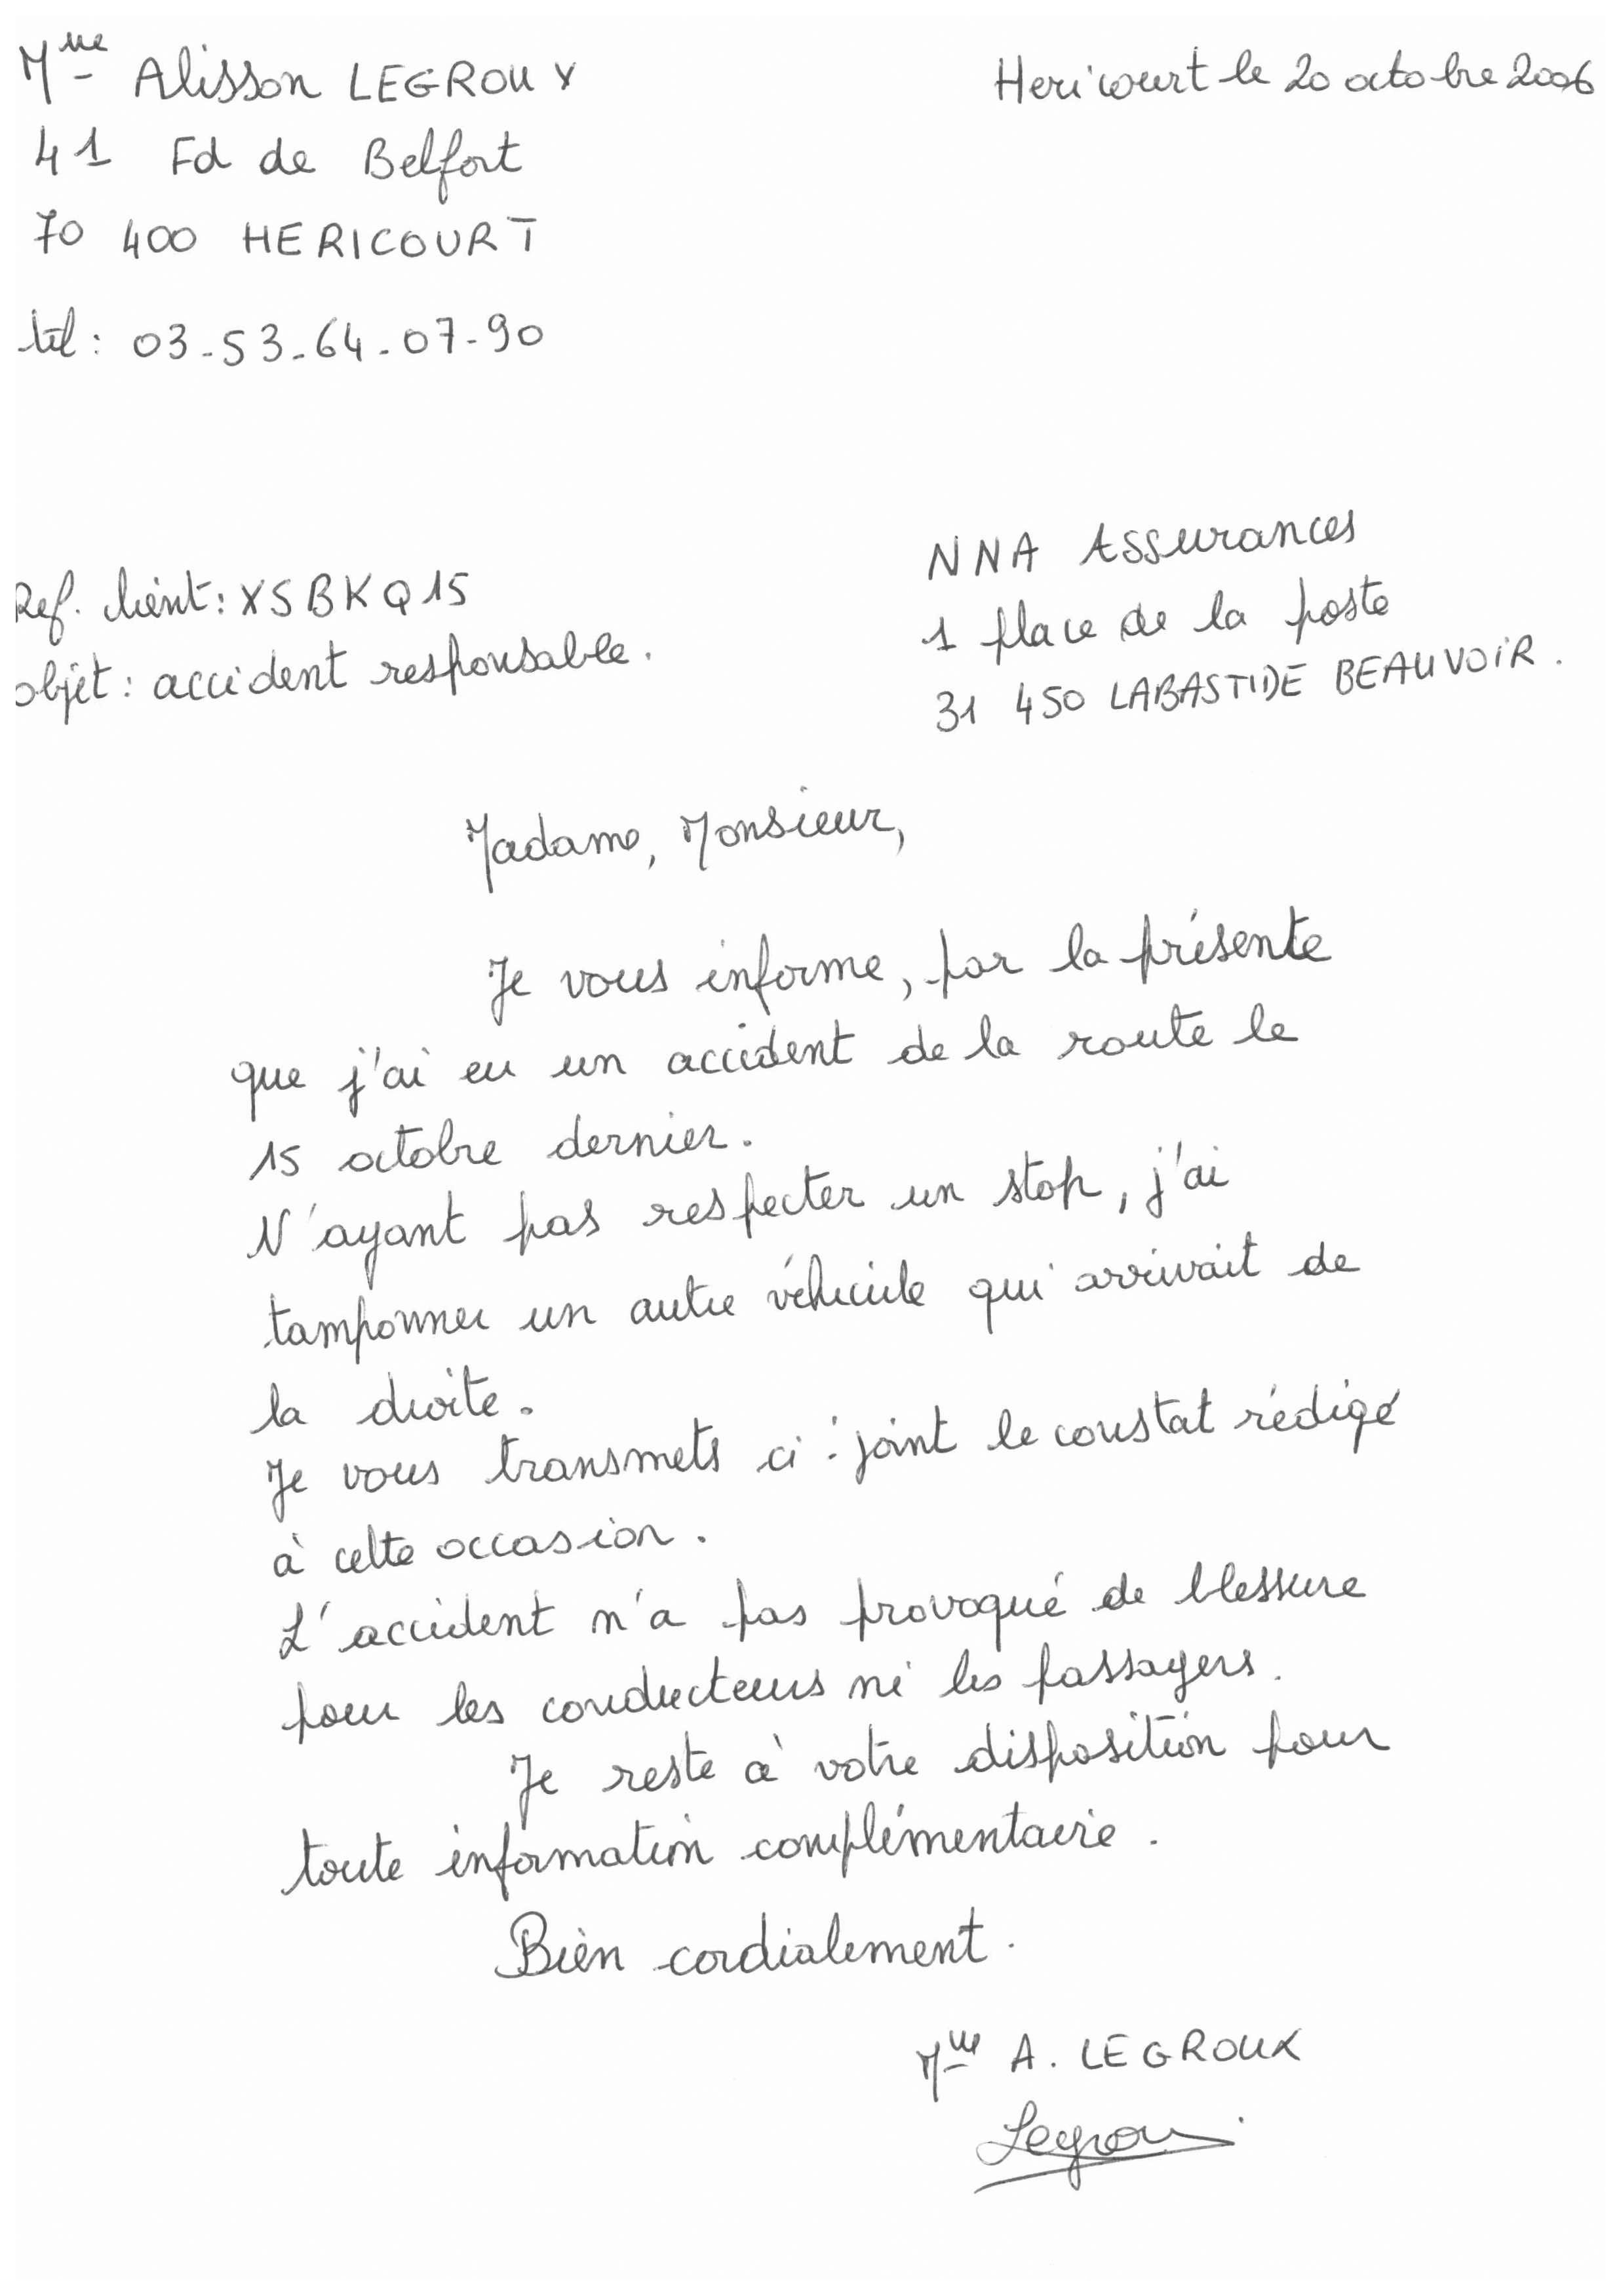 Mlle Alisson LEGROUX
Hericourt le 20 octobre 2006
41 Fd de Belfort
70 400 HERICOURT
tél : 03-53-64-07-90
NNA Assurances
1 place de la poste
31 450 LABASTIDE BEAUVOIR.
Ref. client : XSBKQ15
objet : accident responsable.
Madame, Monsieur,
Je vous informe, par la présente
que j'ai eu un accident de la route le
15 octobre dernier.
N'ayant pas respecter un stop, j'ai
tamponner un autre véhicule qui arrivait de
la droite.
Je vous transmets ci-joint le constat rédigé
à cette occasion.
L'accident n'a pas provoqué de blessure
pour les conducteurs ni les passagers.
Je reste à votre disposition pour
toute information complémentaire.
Bien cordialement.
Mlle A. LEGROUX
Legroux